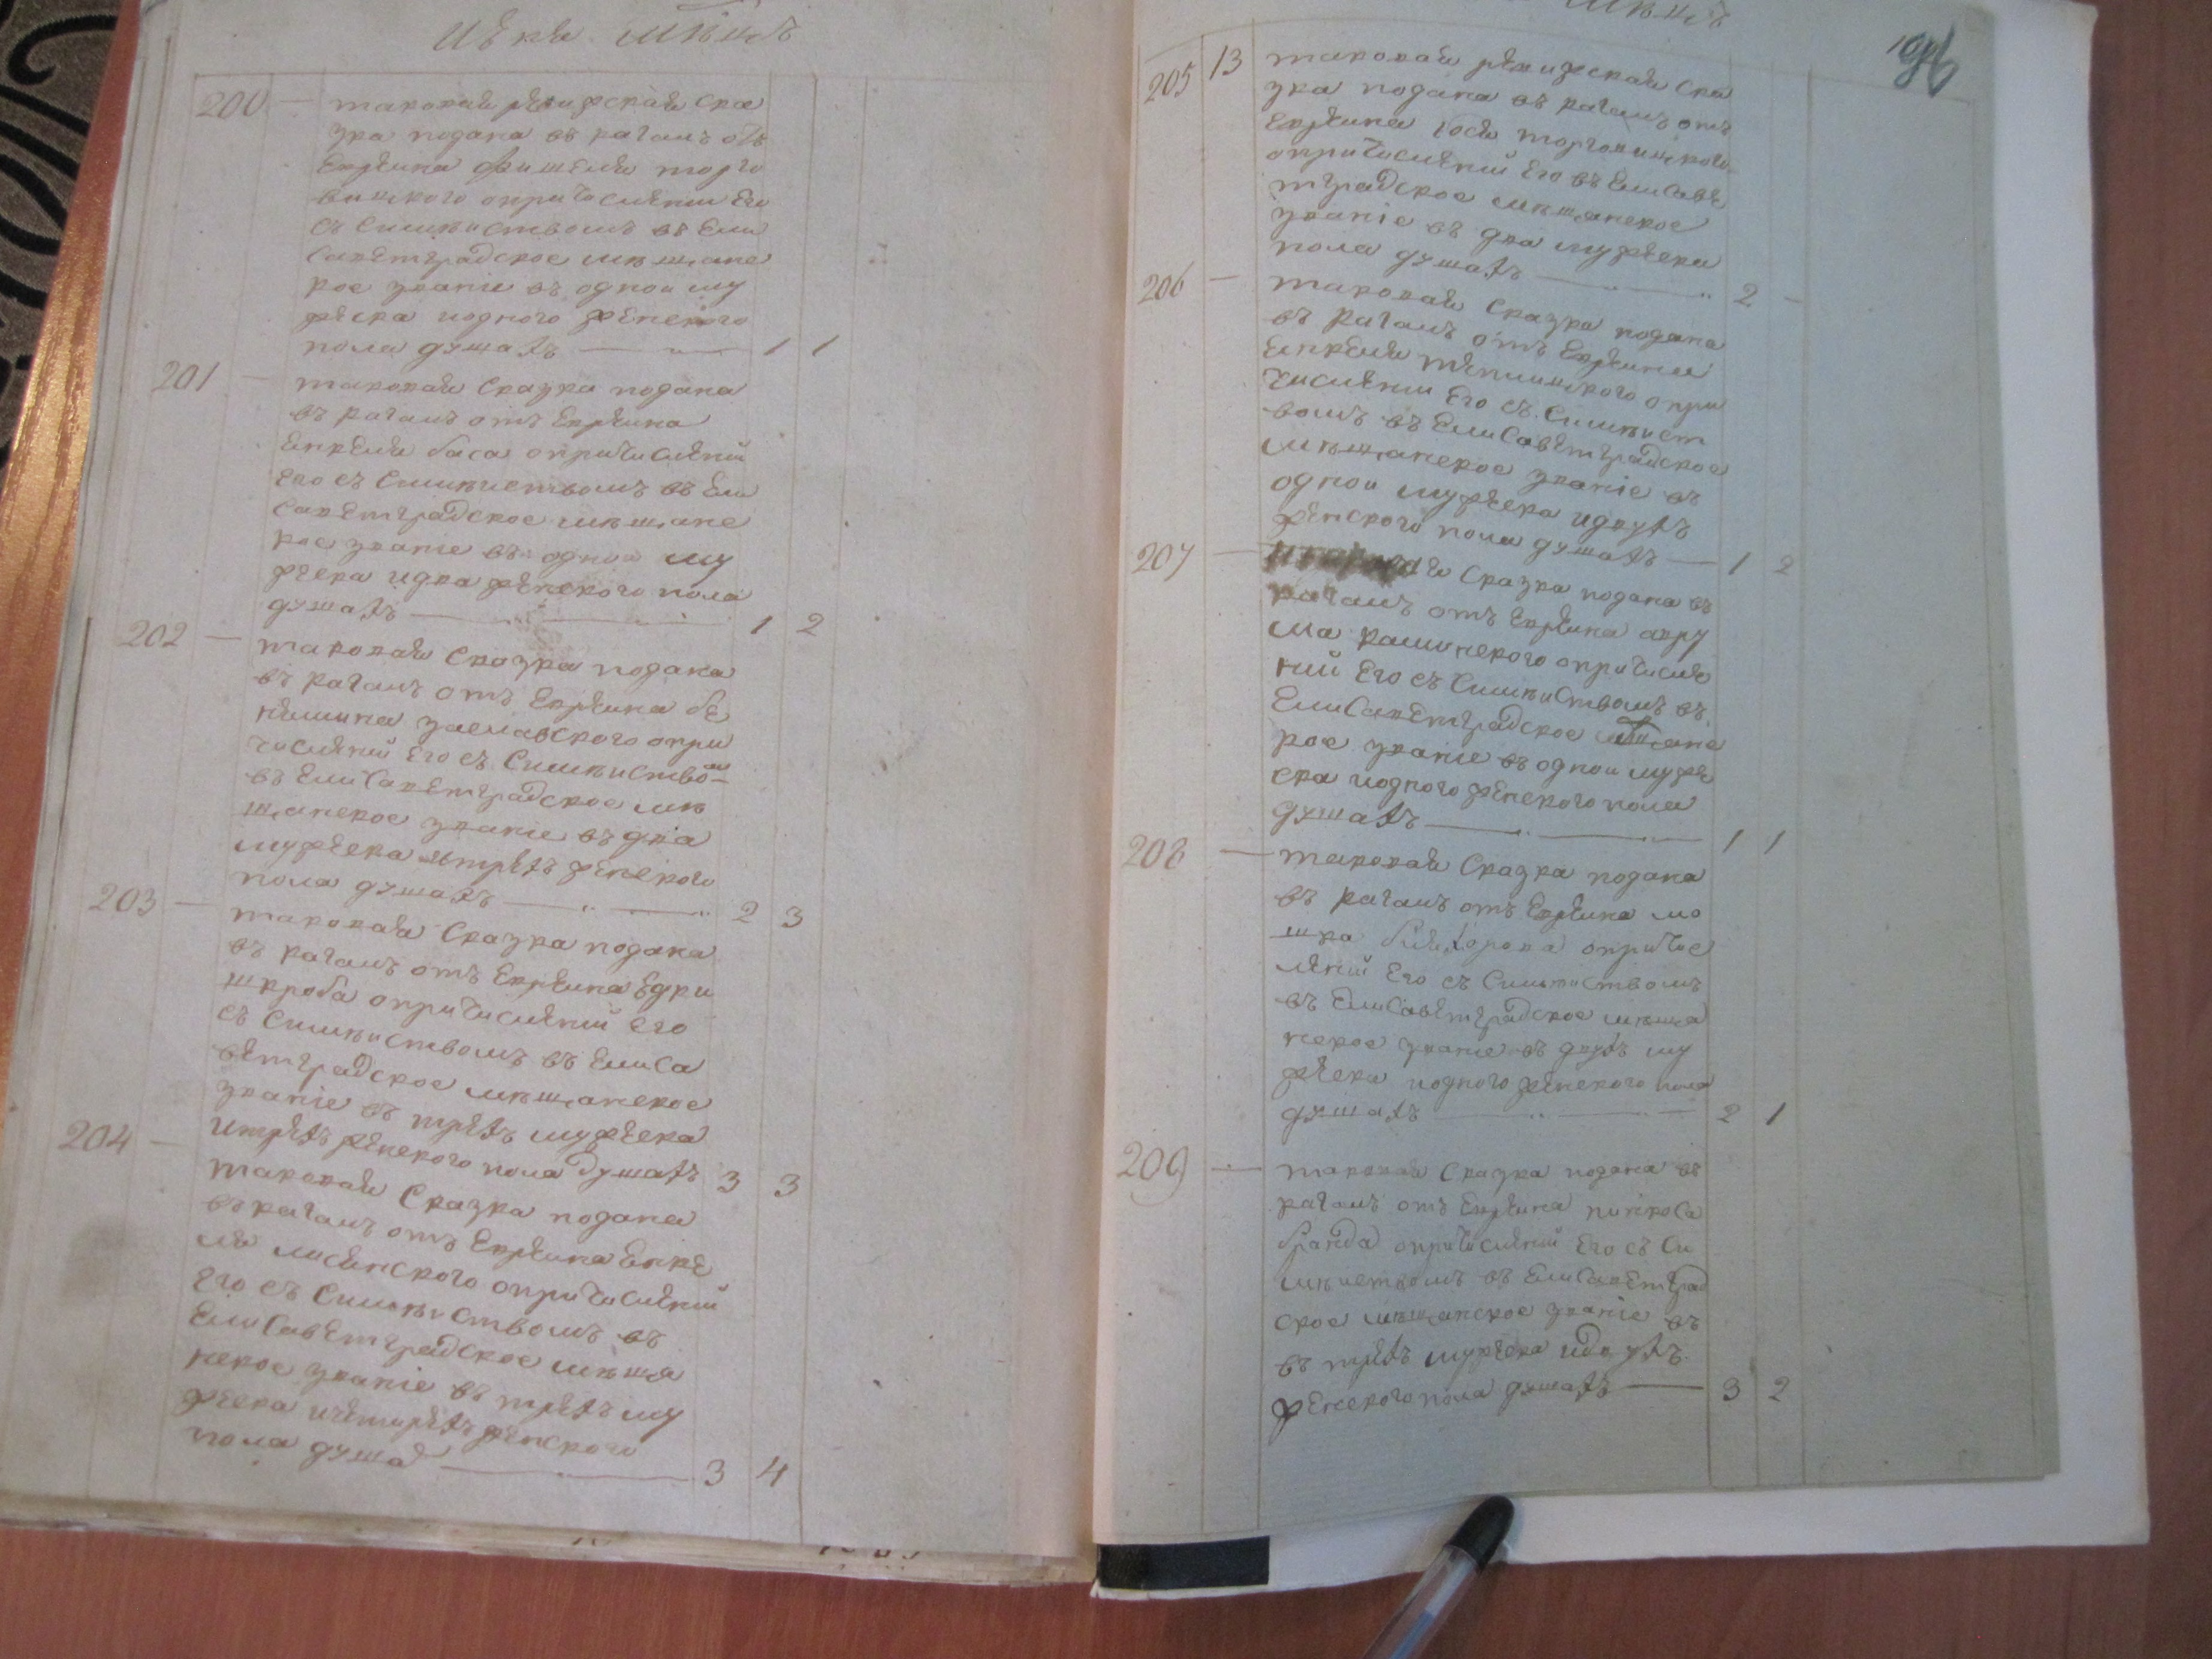 200 — таковая ревизская ска
зка подана въ кагалъ отъ
Еврѣина Фишеля Торго
вицкого опричислении Его
съ Симѣиствомъ въ Ели
саветградское мѣщане
кое звание въ одной му
жеска иодного женского
пола душахъ — 1 1
201 — таковая Сказка подана
въ кагалъ отъ Еврѣина
Янкеля баса опричислении
Его съ Симѣиствомъ въ Ели
Саветградское мѣщанс
кое звание въ одной му
жеска идва женского пола
душахъ — 1 2
202 — таковая Сказка подана
въ кагалъ отъ Еврѣина бе
нямина заславского опри
числении Его съ Симѣиство
въ ЕлиСаветградское мѣ
щанское звание въ два
мужеска итрехъ женского
пола душахъ — 2 3
203 — таковая Сказка подана
въ кагалъ отъ Еврѣина
шкроба опричислении Его
съ Симѣиствомъ въ ЕлиСа
ветградское мѣщанское
звание въ трехъ мужеска
итрехъ женского пола душахъ 3 3
204 — таковая Сказка подана
въ кагалъ отъ Еврѣина Янке
ля лисянского опричислении
Его съ Симѣиствомъ въ
ЕлиСаветградское мѣща
нское звание въ трехъ му
жеска ичетирехъ женского
пола душах — 3 4
205 13 таковая ревизская Ска
зка подана въ кагалъ отъ
Еврѣина Иося торговицкого
опричислении Его въ ЕлиСаве
тградское мѣщанское
звание въ два мужеска
пола душахъ — 2 —
206 — таковая Сказка подана
въ кагалъ отъ Еврѣина
Янкеля тѣплицкого опри
числении Его съ Симѣист
вомъ въ ЕлиСаветградское
мѣщанское звание въ
одной мужеска идвухъ
женского пола душахъ — 1 2
207 — таковая Сказка подана въ
кагалъ отъ Еврѣина авру
ма калинского опричисле
нии Его съ Симѣиствомъ въ
ЕлиСаветградское мѣщанс
кое звание въ одной муже
ска иодного женского пола
душахъ — 1 1
208 — таковая Сказка подана
въ кагалъ отъ Еврѣина мо
шка опричис
лении Его съ Симѣиствомъ
въ ЕлиСаветградское мѣща
нское звание въ двухъ му
жеска иодного женского пола
душахъ — 2 1
209 — таковая Сказка подана въ
кагалъ отъ Еврѣина пинкоса
бранда опричислении Его съ Си
мѣиствомъ въ ЕлиСаветград
ское мѣщанское звание въ
въ трехъ мужеска идвухъ
женского пола душахъ — 3 2